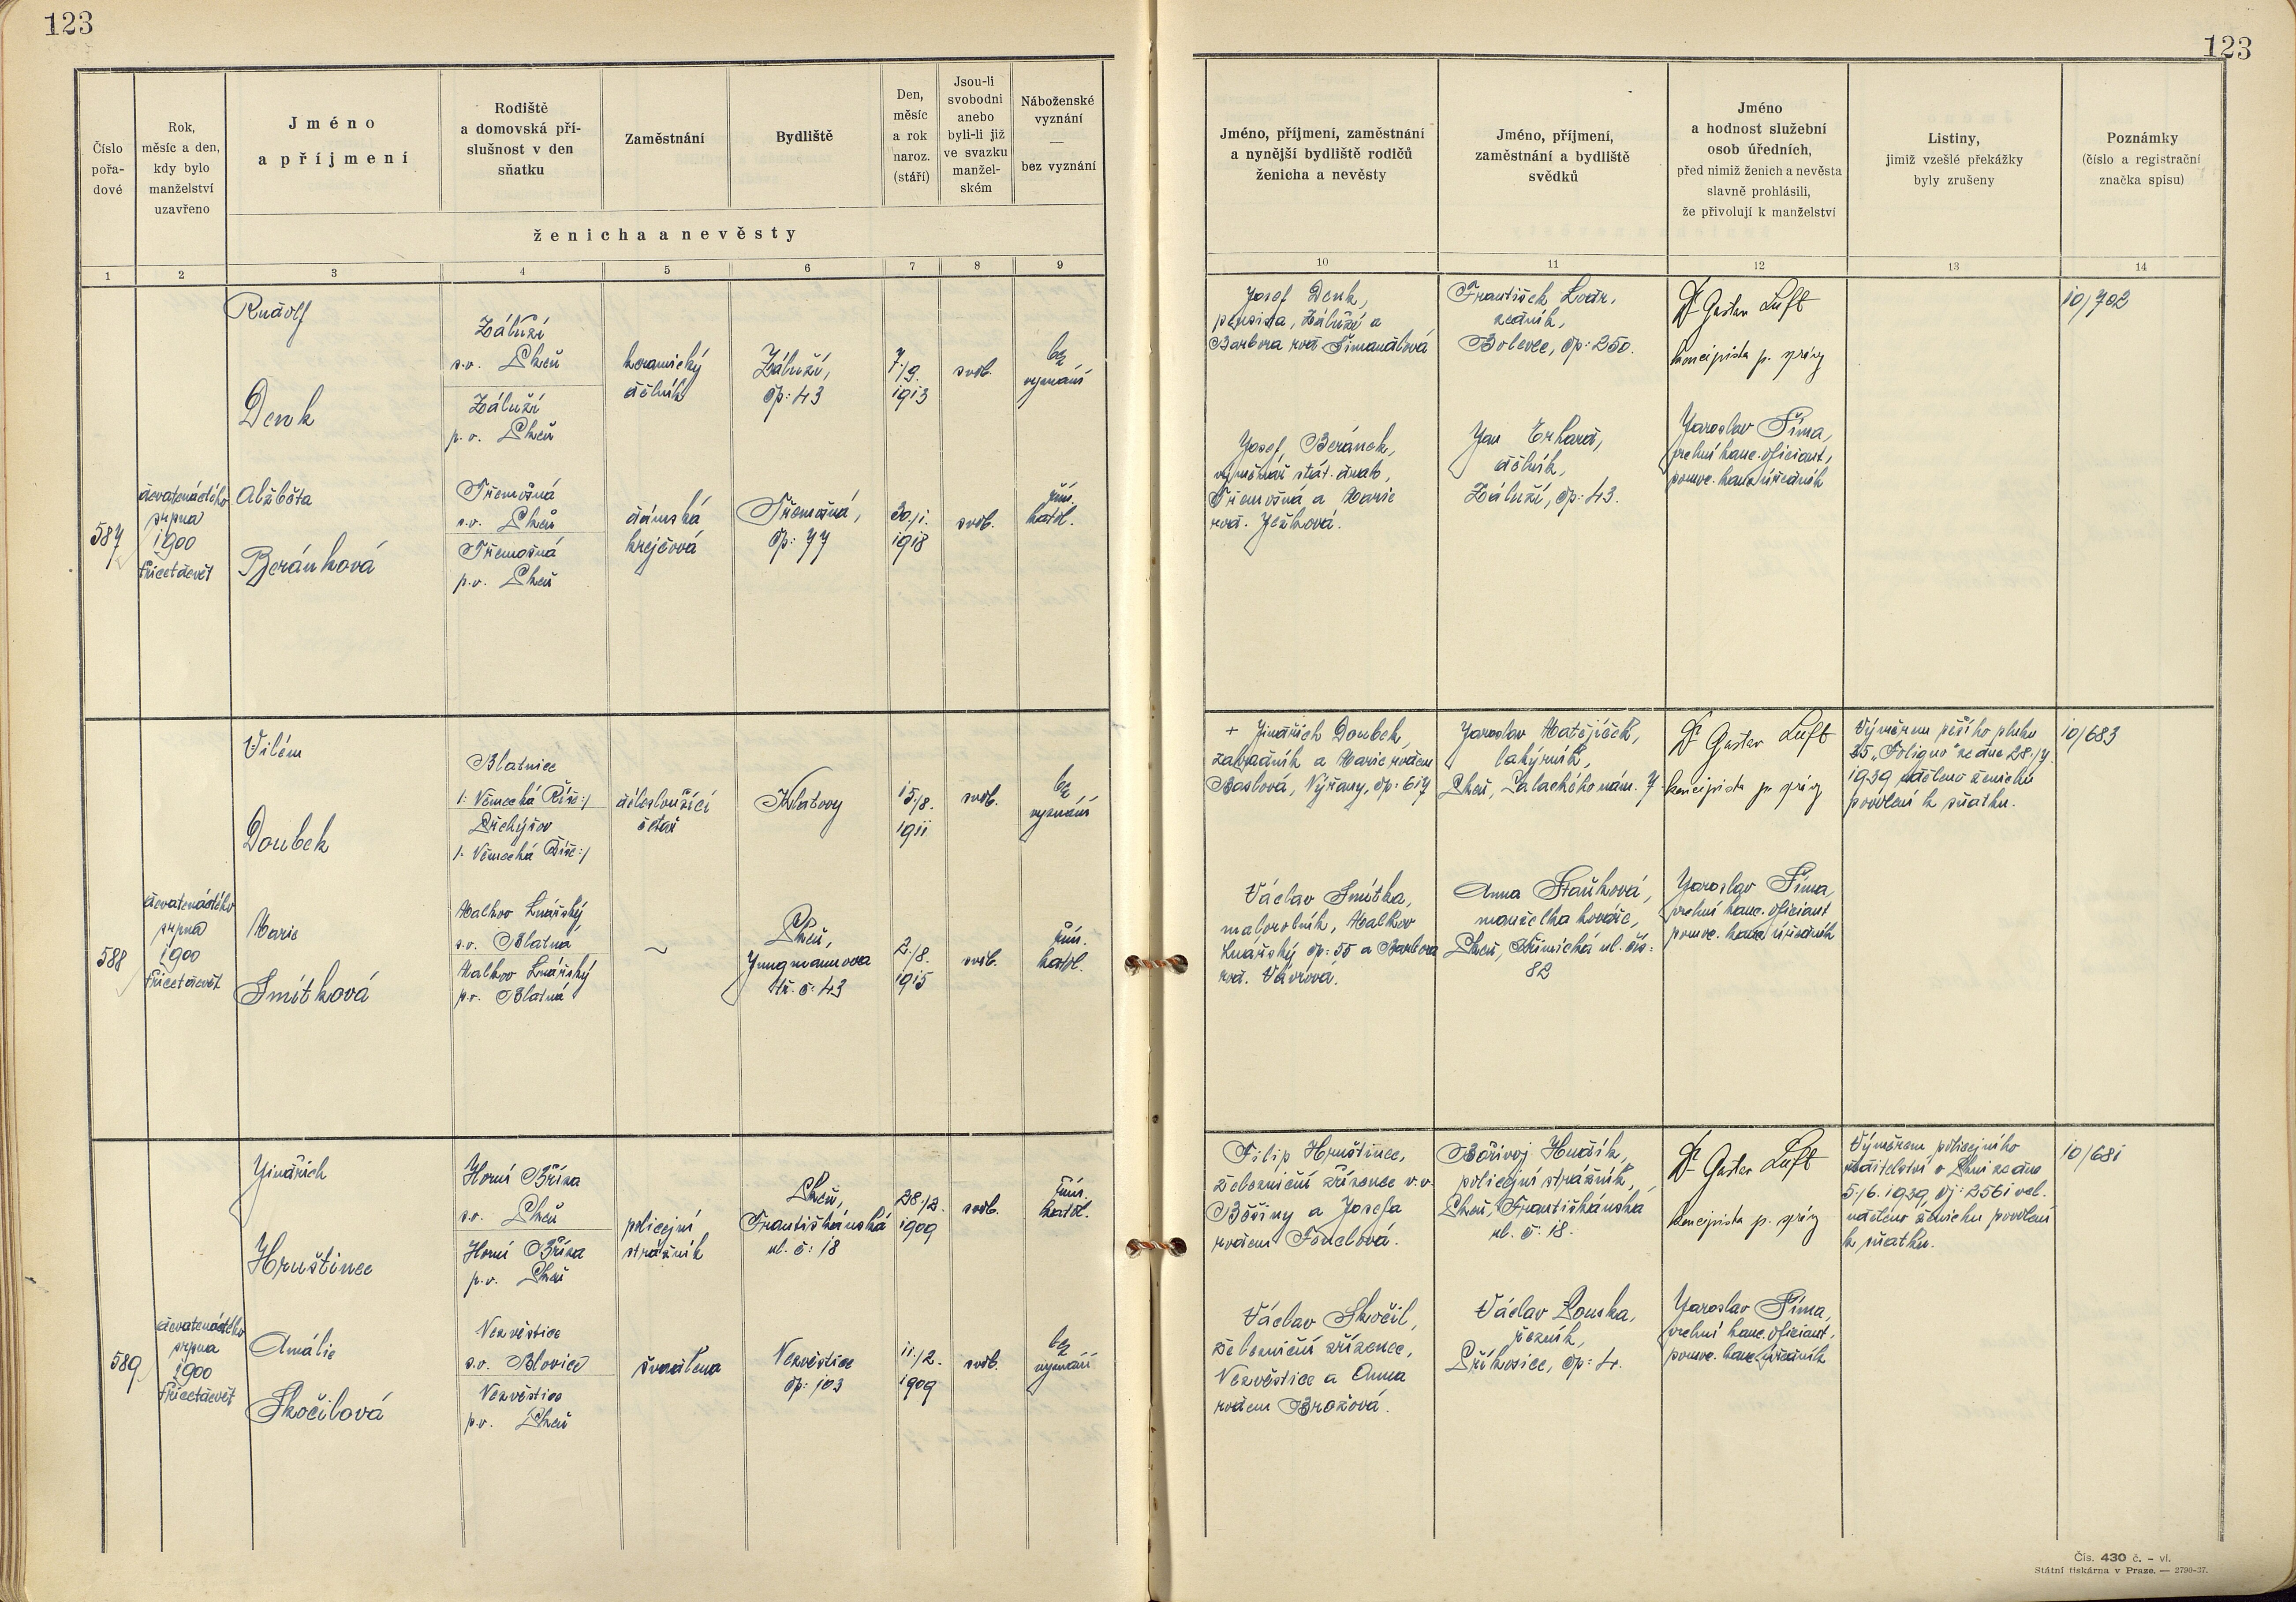 123
123
Číslo
pořa-
dové
Rok,
měsíc a den,
kdy bylo
manželství
uzavřeno
Jméno
a příjmení
Rodiště
a domovská pří-
slušnost v den
sňatku
Zaměstnání
Bydliště
Den,
měsíc
a rok
naroz.
(stáří)
Jsou-li
svobodni
anebo
byli-li již
ve svazku
manžel-
ském
Náboženské
vyznání
—
bez vyznání
ženicha a nevěsty
Jméno, příjmení, zaměstnání
a nynější bydliště rodičů
ženicha a nevěsty
Jméno, příjmení,
zaměstnání a bydliště
svědků
Jméno
a hodnost služební
osob úředních,
před nimiž ženich a nevěsta
slavně prohlásili,
že přivolují k manželství
Listiny,
jimiž vzešlé překážky
byly zrušeny
Poznámky
(číslo a registrační
značka spisu)
1 2 3 4 5 6 7 8 9 10 11 12 13 14
587
devatenáctého
srpna
1900
třicetdevět
Rudolf
Denk
Záluží
s.o. Plzeň
Záluží
p.o. Plzeň
keramický
dělník
Záluží,
čp: 43
7./9.
1913
svob.
bez
vyznání
Alžběta
Beránková
Třemošná
s.o. Plzeň
Třemošná
p.o. Plzeň
dámská
krejčová
Třemošná,
čp: 77
30./1.
1918
svob.
řím.
katol.
Josef Denk,
pensista, Záluží a
Barbora roz. Šimandlová
Josef Beránek,
výměnkář stát. drah,
Třemošná a Marie
roz. Ježková.
František Lodr,
zedník,
Bolevec, čp: 250.
Jan Erhard,
dělník,
Záluží, čp: 43.
Dr Gustav Luft
koncipista p. správy
Jaroslav Šíma,
vrchní kanc. oficiant,
pomoc. kanc. úředník
10/702
588
devatenáctého
srpna
1900
třicetdevět
Vilém
Doubek
Blatnice
/: Německá Říše:/
Přehýšov
/: Německá Říše:/
délesloužící
četař
Klatovy
15./8.
1911
svob.
bez
vyznání
Marie
Smítková
Malkov Lnářský
s.o. Blatná
Malkov Lnářský
p.o. Blatná
~
Plzeň,
Jungmannova
tř. č: 43
2./8.
1915
svob.
řím.
katol.
+ Jindřich Doubek,
zahradník a Marie rodem
Baslová, Nýřany, čp: 617
Václav Smítka,
malorolník, Malkov
Lnářský čp: 55 a Barbora
roz. Vávrová.
Jaroslav Matějíček,
lakýrník,
Plzeň, Palackého nám. 7
Anna Staňková,
manželka kováře,
Plzeň, Křimická ul. čís:
82
Dr Gustav Luft
koncipista p. správy
Jaroslav Šíma,
vrchní kanc. oficiant
pomoc. kanc. úředník
Výměrem pěšího pluku
35 „Foligno" ze dne 28./7.
1939 uděleno ženichu
povolení k sňatku.
10/683
589
devatenáctého
srpna
1900
třicetdevět
Jindřich
Hruštinec
Horní Bříza
s.o. Plzeň
Horní Bříza
p.o. Plzeň
policejní
strážník
Plzeň,
Františkánská
ul. č: 18
28./2.
1909
svob.
řím.
katol.
Amálie
Skočilová
Nezvěstice
s.o. Blovice
Nezvěstice
p.o. Plzeň
švadlena
Nezvěstice
čp: 103
11./2.
1909
svob.
bez
vyznání
Filip Hruštinec,
železniční zřízenec v.v.
a Josefa
rodem
Václav Skočil,
železniční zřízenec,
Nezvěstice a Anna
rodem Brožová.
Bořivoj Hudík,
policejní strážník,
Plzeň, Františkánská
ul. č: 18.
Václav Louska,
řezník,
Příkosice, čp: 4.
Dr Gustav Luft
koncipista p. správy
Jaroslav Šíma,
vrchní kanc. oficiant,
pomoc. kanc. úředník
Výměrem policejního
ředitelství v Plzni ze dne
5./6. 1939, čj: 2561 vel.
uděleno ženichu povolení
k sňatku.
10/681
Čís. 430 č. - vl.
Státní tiskárna v Praze. — 2790-37.